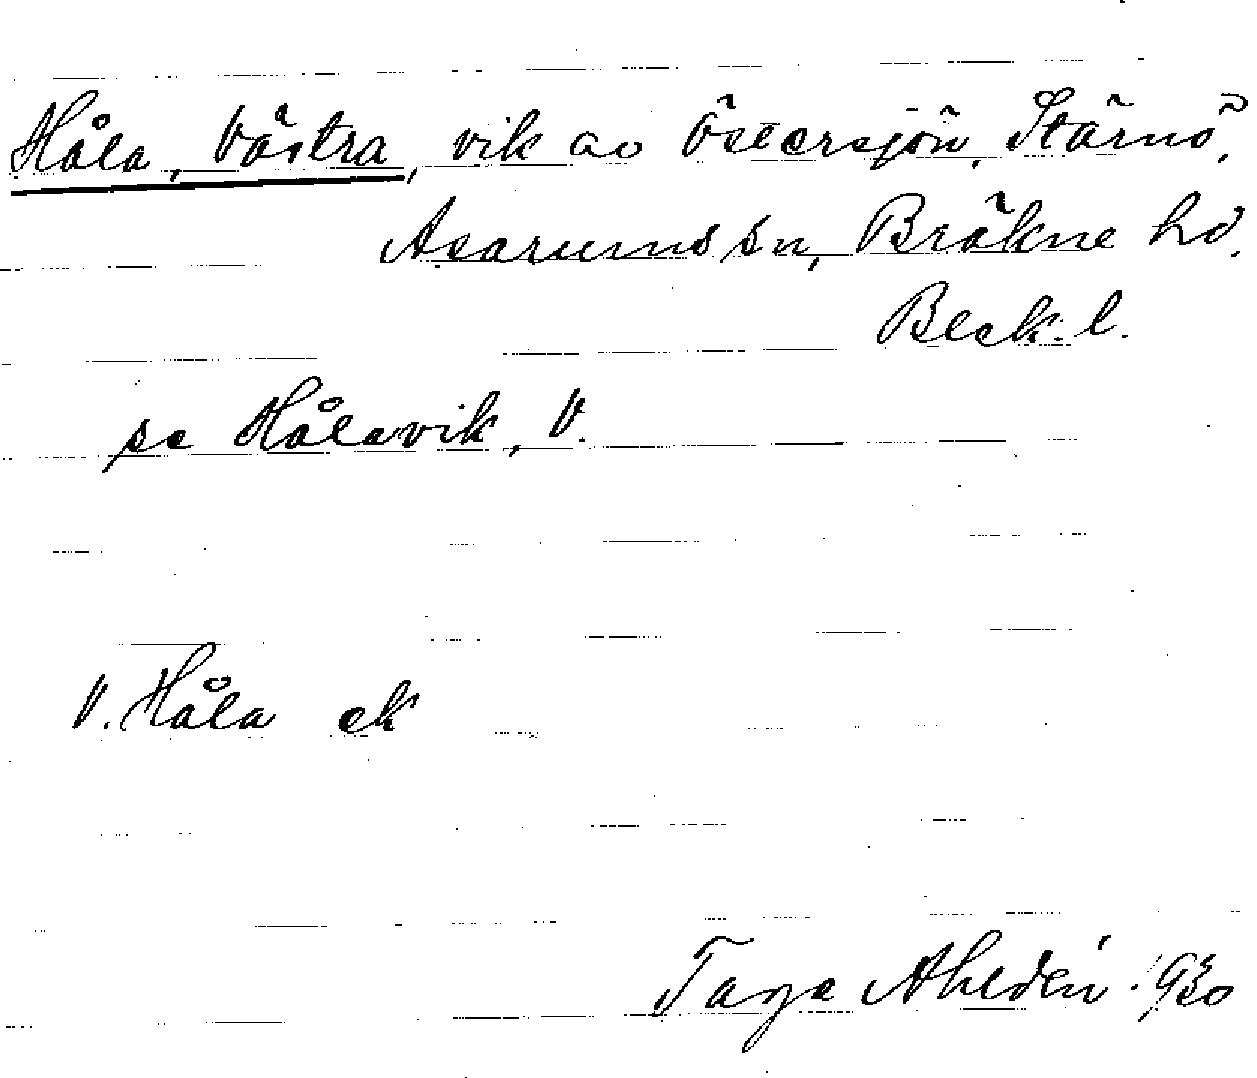 Håla, Västra, vik av Östersjön, Stärnö,
Asarums sn, Bräkne hd.
Blek. l.
se Hålavik, V.
V. Håla ek
Tage Ahldén 1930